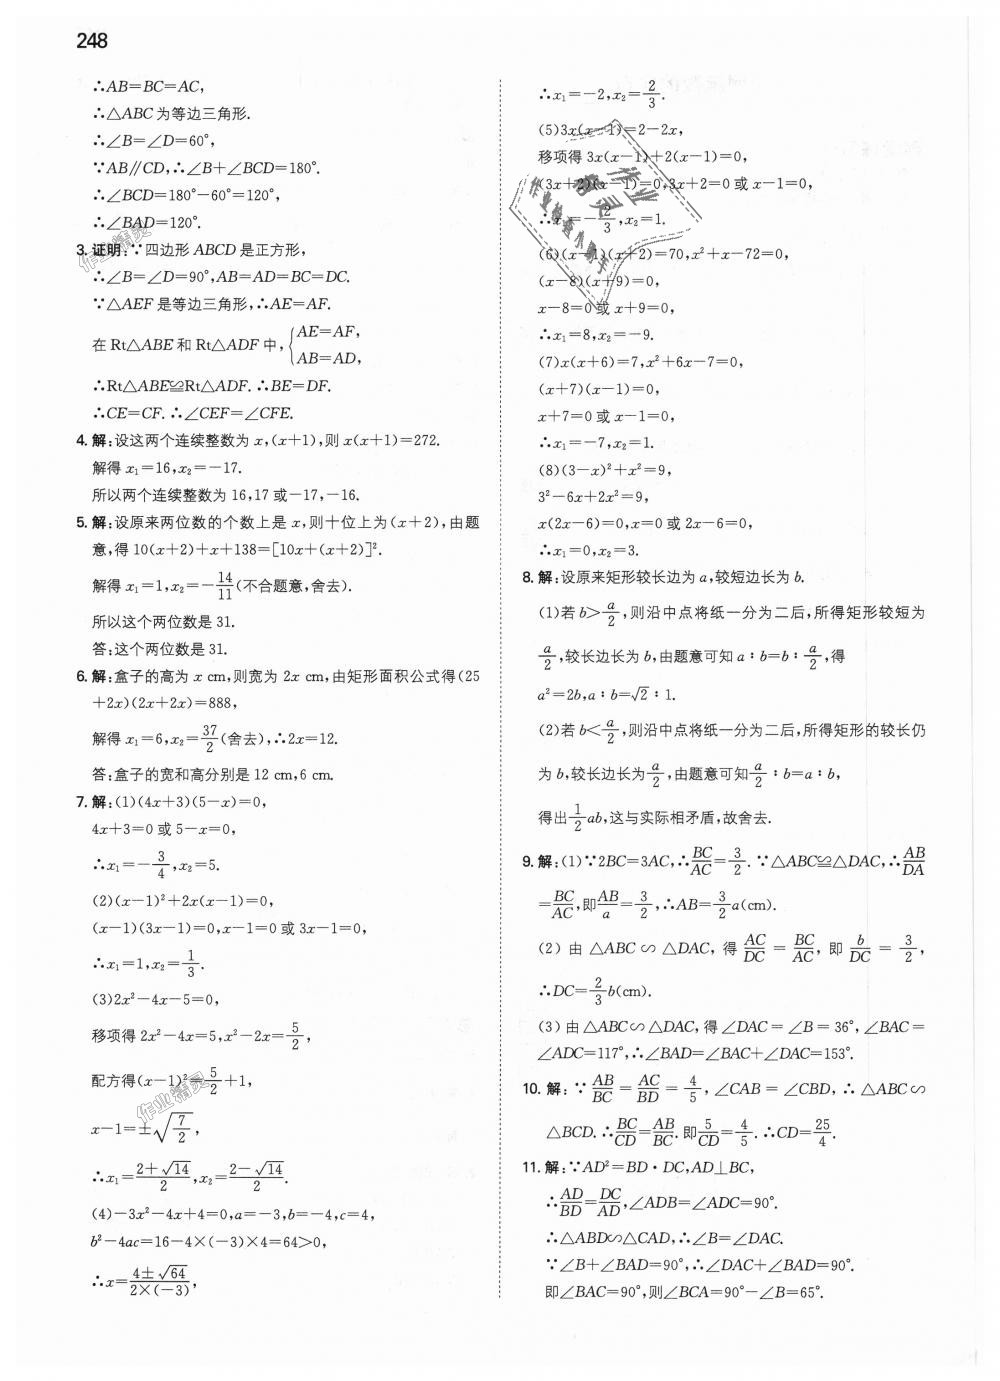 248
∴AB=BC=AC,
∴△ABC为等边三角形.
∴∠B=∠D=60°,
∵AB∥CD,∴∠B+∠BCD=180°.
∴∠BCD=180°-60°=120°,
∴∠BAD=120°.
3. 证明:∵四边形ABCD是正方形,
∴∠B=∠D=90°,AB=AD=BC=DC.
∵△AEF是等边三角形,∴AE=AF.
在Rt△ABE和Rt△ADF中,{AE=AF,
AB=AD,
∴Rt△ABE≌Rt△ADF.∴BE=DF.
∴CE=CF.∴∠CEF=∠CFE.
4. 解:设这两个连续整数为x,(x+1),则x(x+1)=272.
解得x₁=16,x₂=-17.
所以两个连续整数为16,17或-17,-16.
5. 解:设原来两位数的个数上是x,则十位上为(x+2),由题
意,得10(x+2)+x+138=[10x+(x+2)]².
解得x₁=1,x₂=-14/11(不合题意,舍去).
所以这个两位数是31.
答:这个两位数是31.
6. 解:盒子的高为x cm,则宽为2x cm,由矩形面积公式得(25
+2x)(2x+2x)=888,
解得x₁=6,x₂=37/2(舍去),∴2x=12.
答:盒子的宽和高分别是12 cm,6 cm.
7. 解:(1)(4x+3)(5-x)=0,
4x+3=0或5-x=0,
∴x₁=-3/4,x₂=5.
(2)(x-1)²+2x(x-1)=0,
(x-1)(3x-1)=0,x-1=0或3x-1=0,
∴x₁=1,x₂=1/3.
(3)2x²-4x-5=0,
移项得2x²-4x=5,x²-2x=5/2,
配方得(x-1)²=5/2+1,
x-1=±√(7/2),
∴x₁=(2+√14)/2,x₂=(2-√14)/2.
(4)-3x²-4x+4=0,a=-3,b=-4,c=4,
b²-4ac=16-4×(-3)×4=64>0,
∴x=(4±√64)/(2×(-3)),
∴x₁=-2,x₂=2/3.
(5)3x(x-1)=2-2x,
移项得3x(x-1)+2(x-1)=0,
(3x+2)(x-1)=0,3x+2=0或x-1=0,
∴x₁=-2/3,x₂=1.
(6)(x-1)(x+2)=70,x²+x-72=0,
(x-8)(x+9)=0,
x-8=0或x+9=0,
∴x₁=8,x₂=-9.
(7)x(x+6)=7,x²+6x-7=0,
(x+7)(x-1)=0,
x+7=0或x-1=0,
∴x₁=-7,x₂=1.
(8)(3-x)²+x²=9,
3²-6x+2x²=9,
x(2x-6)=0,x=0或2x-6=0,
∴x₁=0,x₂=3.
8. 解:设原来矩形较长边为a,较短边长为b.
(1)若b>a/2,则沿中点将纸一分为二后,所得矩形较短为
a/2,较长边长为b,由题意可知a∶b=b∶a/2,得
a²=2b,a∶b=√2∶1.
(2)若b<a/2,则沿中点将纸一分为二后,所得矩形的较长仍
为b,较长边长为a/2,由题意可知a/2∶b=a∶b,
得出1/2ab,这与实际相矛盾,故舍去.
9. 解:(1)∵2BC=3AC,∴BC/AC=3/2.∵△ABC≌△DAC,∴AB/DA
=BC/AC,即AB/a=3/2,∴AB=3/2a(cm).
(2)由△ABC∽△DAC,得AC/DC=BC/AC,即b/DC=3/2,
∴DC=2/3b(cm).
(3)由△ABC∽△DAC,得∠DAC=∠B=36°,∠BAC=
∠ADC=117°,∴∠BAD=∠BAC+∠DAC=153°.
10. 解:∵AB/BC=AC/BD=4/5,∠CAB=∠CBD,∴△ABC∽
△BCD.∴BC/CD=AB/BC.即5/CD=4/5.∴CD=25/4.
11. 解:∵AD²=BD·DC,AD⊥BC,
∴AD/BD=DC/AD,∠ADB=∠ADC=90°.
∴△ABD∽△CAD,∴∠B=∠DAC.
∵∠B+∠BAD=90°,∴∠DAC+∠BAD=90°.
即∠BAC=90°,则∠BCA=90°-∠B=65°.
作业精灵
作业精灵
作业精灵
作业检查小助手